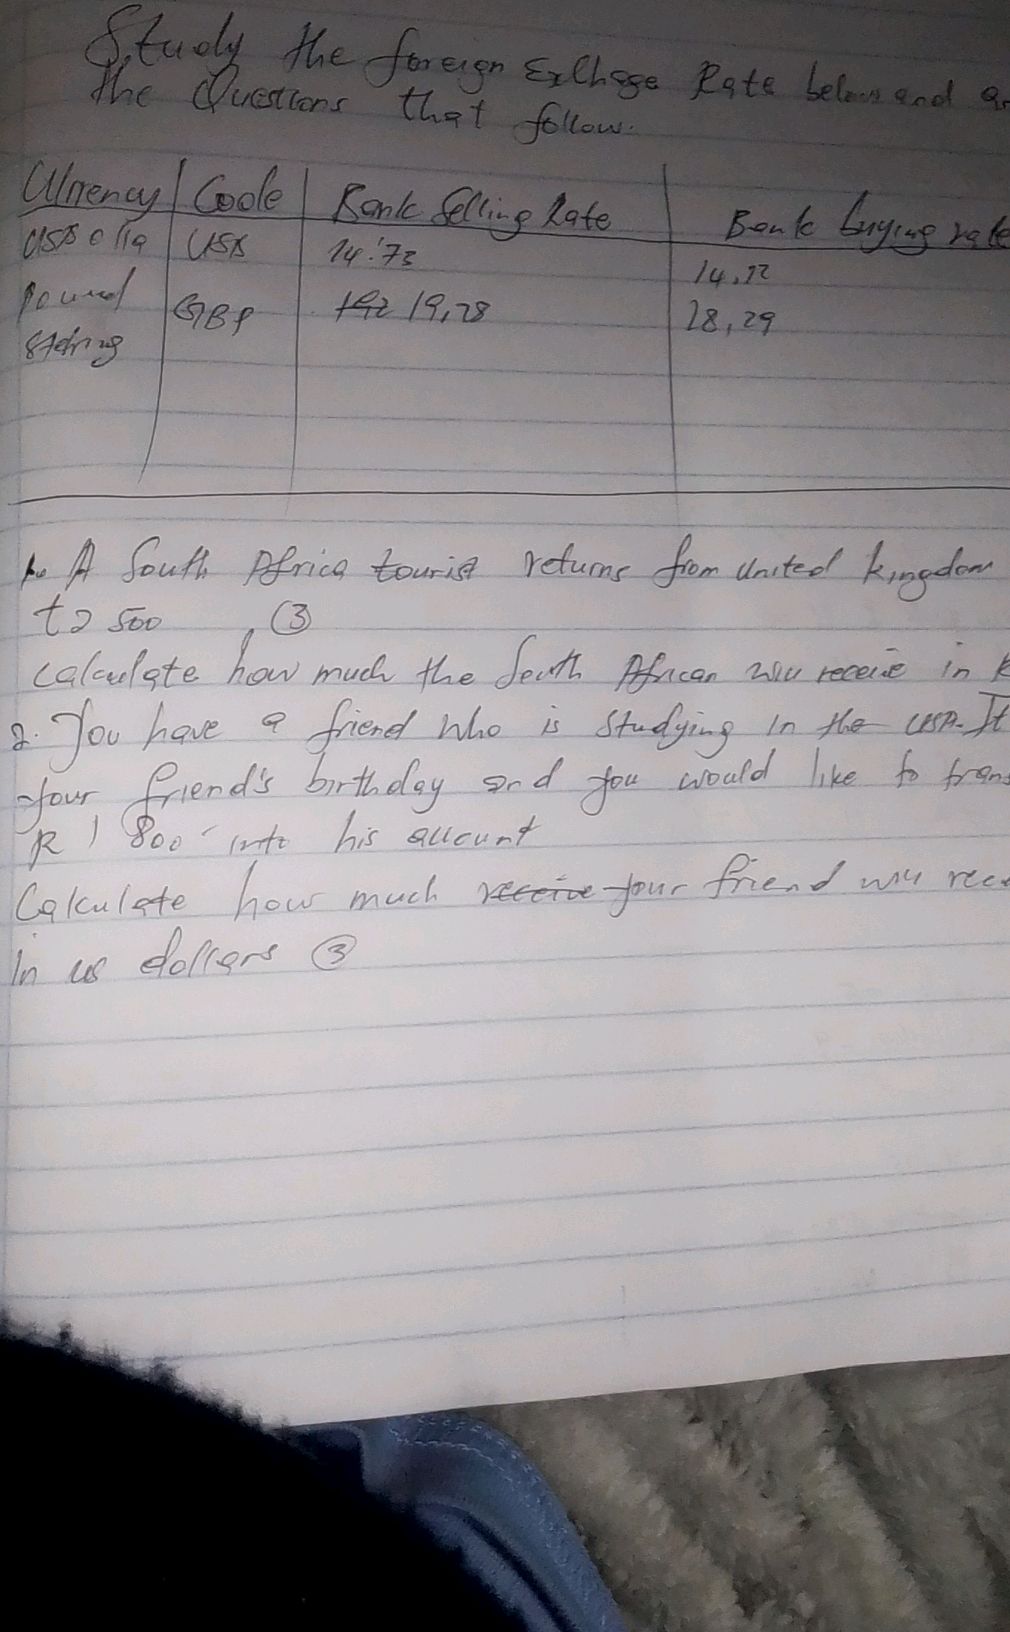 Study the foreign Exchage Rate below and
the Questions that follow.
Currency Code Bank Selling Rate Bank buying rate
USD olla US$ 14.73 14,22
Pound GBP 19,28 18,29
Stelring
1. A South Africa tourist returns from United kingdom
500 ③
calculate how much the South African will receive in
2. You have a friend who is studying in the USA. It
your friend's birthday and you would like to trans
R 1 800 into his account
Calculate how much your friend will rece
In us dollars ③